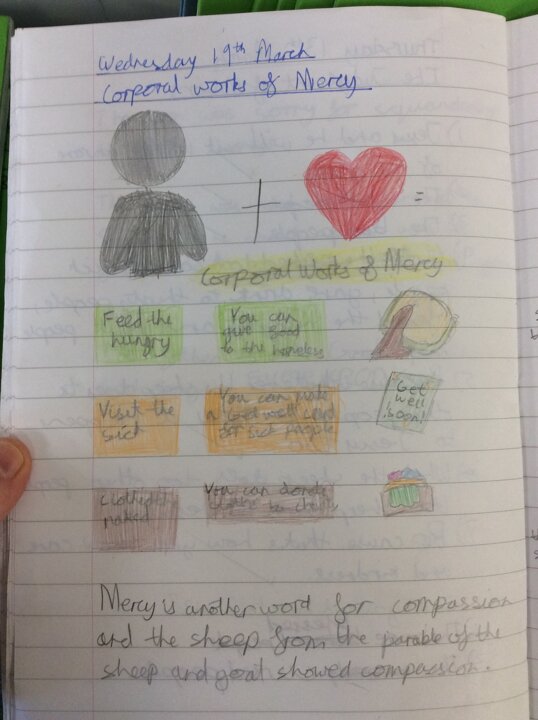 Wednesday 19th March
Corporal works of Mercy
+
=
Corporal Works of Mercy
Feed the hungry
You can give food to the homeless
Visit the sick
You can make a Get well card for sick people
Get well soon!
Clothe the naked
You can donate clothes to
Mercy is another word for compassion
and the sheep from the parable of the
sheep and goat showed compassion.